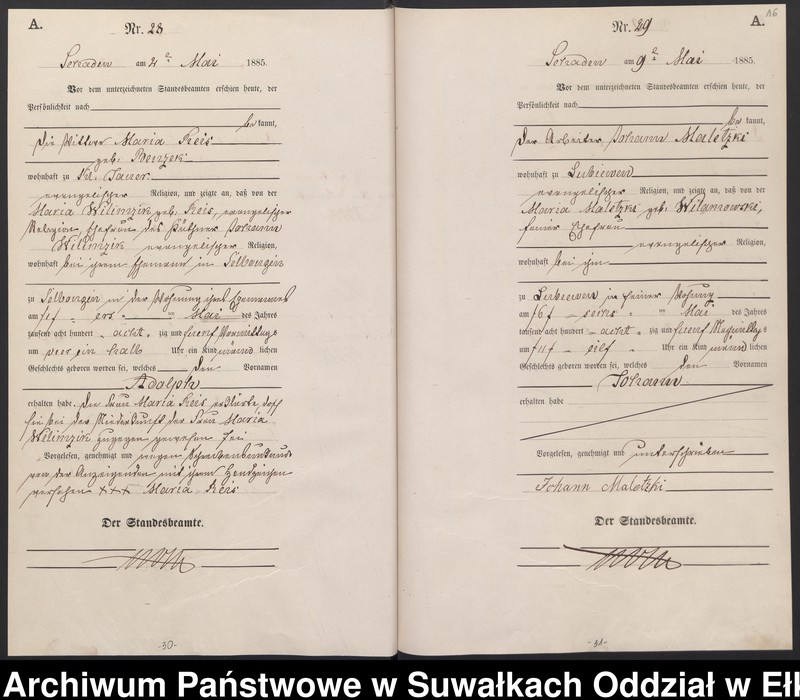 A.
Nr. 28
am 2 Mai 1885.
Vor dem unterzeichneten Standesbeamten erschien heute, der
Persönlichkeit nach
be kannt,
die Wittwe Maria Reis
geb.
wohnhaft zu Kl.
evangelischer Religion, und zeigte an, daß von der
Maria Wilimzik geb. Reis, evangelischer
Religion, Ehefrau des Johann
Wilimzik evangelischer Religion,
wohnhaft bei ihrem Ehemann in
zu in der Wohnung ihres Ehemannes
am Mai des Jahres
tausend acht hundert acht zig und fuenf Vormittags
um vier ein halb Uhr ein Kind männ lichen
Geschlechts geboren worden sei, welches den Vornamen
Adolph
erhalten habe. Die Frau Maria Reis erklärte, daß
sie bei der Niederkunft der Frau Maria
Wilimzik zugegen gewesen sei
Vorgelesen, genehmigt und wegen
von der Anzeigenden mit ihrem Handzeichen
versehen +++ Maria Reis
Der Standesbeamte.
-30-
16
A.
Nr. 29
am 9 Mai 1885.
Vor dem unterzeichneten Standesbeamten erschien heute, der
Persönlichkeit nach
be kannt,
der Arbeiter Johann Maletzki
wohnhaft zu
evangelischer Religion, und zeigte an, daß von der
Maria Maletzki geb. Wilamowski,
seiner Ehefrau
evangelischer Religion,
wohnhaft bei ihm
zu in seiner Wohnung
am Mai des Jahres
tausend acht hundert acht zig und fuenf
um eilf Uhr ein Kind männ lichen
Geschlechts geboren worden sei, welches den Vornamen
Johann
erhalten habe
Vorgelesen, genehmigt und unterschrieben
Johann Maletzki
Der Standesbeamte.
-31-
Archiwum Państwowe w Suwałkach Oddział w Ełk